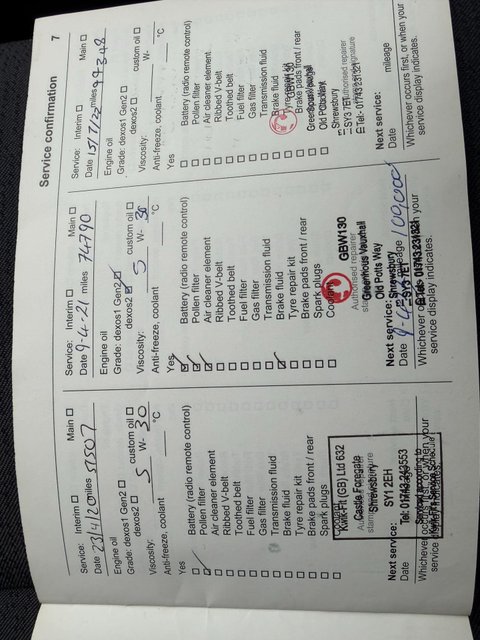 Service confirmation 7
Service: Interim Main
Date 23/4/20 miles 51507
Engine oil
Grade: dexos1 Gen2
dexos2 custom oil
Viscosity: 5 W- 30
Anti-freeze, coolant °C
Yes
Battery (radio remote control)
Pollen filter
Air cleaner element
Ribbed V-belt
Toothed belt
Fuel filter
Gas filter
Transmission fluid
Brake fluid
Tyre repair kit
Brake pads front / rear
Spark plugs
Kwik-Fit (GB) Ltd 632
Castle Foregate
Shrewsbury
SY1 2EH
Tel: 01743 243553
Next service:
Date
Whichever occurs first, or when your
service display indicates.
Service: Interim Main
Date 9-4-21 miles 74790
Engine oil
Grade: dexos1 Gen2
dexos2 custom oil
Viscosity: 5 W- 30
Anti-freeze, coolant °C
Yes
Battery (radio remote control)
Pollen filter
Air cleaner element
Ribbed V-belt
Toothed belt
Fuel filter
Gas filter
Transmission fluid
Brake fluid
Tyre repair kit
Brake pads front / rear
Spark plugs
Coolant
GBW130
Authorised repairer
Greenhous Vauxhall
Old Potts Way
Shrewsbury
SY3 7ET
Next service:
Date mileage 109,000
Whichever occurs first, or when your
service display indicates.
Service: Interim Main
Date 15/7/22 mileage 99348
Engine oil
Grade: dexos1 Gen2
dexos2 custom oil
Viscosity: W-
Anti-freeze, coolant °C
Yes
Battery (radio remote control)
Pollen filter
Air cleaner element
Ribbed V-belt
Toothed belt
Fuel filter
Gas filter
Transmission fluid
Brake fluid
Tyre repair kit
GBW130
Brake pads front / rear
Shrewsbury
SY3 7ET
Authorised repairer
Tel: 01743 231321
Next service:
Date mileage
Whichever occurs first, or when your
service display indicates.